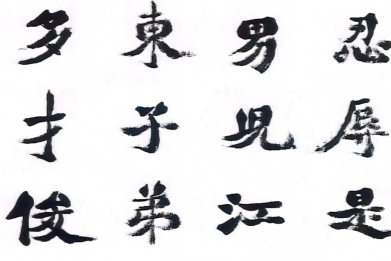 忍辱是
男兒江
東子弟
多才俊